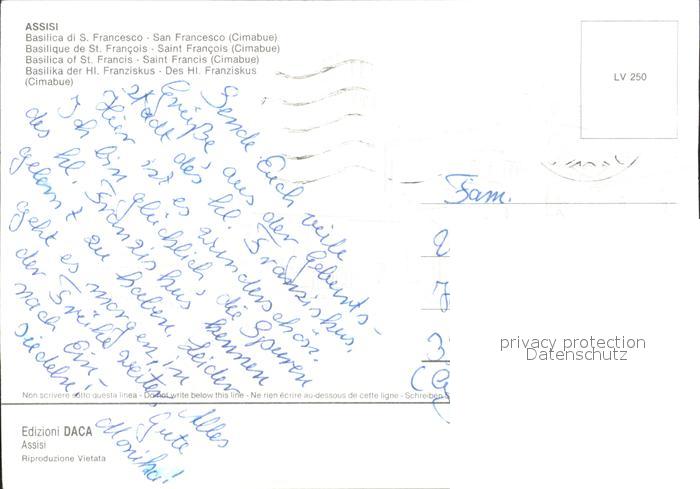 ASSISI
Basilica di S. Francesco - San Francesco (Cimabue)
Basilique de St. François - Saint François (Cimabue)
Basilica of St. Francis - Saint Francis (Cimabue)
Basilika der Hl. Franziskus - Des Hl. Franziskus
(Cimabue)
LV 250
Sende Euch viele
Grüße aus der Geburts-
stadt des hl. Franziskus.
Hier ist es wunderschön.
Ich bin glücklich, die Spuren
des hl. Franziskus kennen
gelernt zu haben. Leider
geht es morgen in
der Frühe weiter
nach Ein-
siedeln!
Alles
Gute
Monika!
Fam.
privacy protection
Datenschutz
Non scrivere sotto questa linea - Do not write below this line - Ne rien écrire au-dessous de cette ligne - Schreiben
Edizioni DACA
Assisi
Riproduzione Vietata